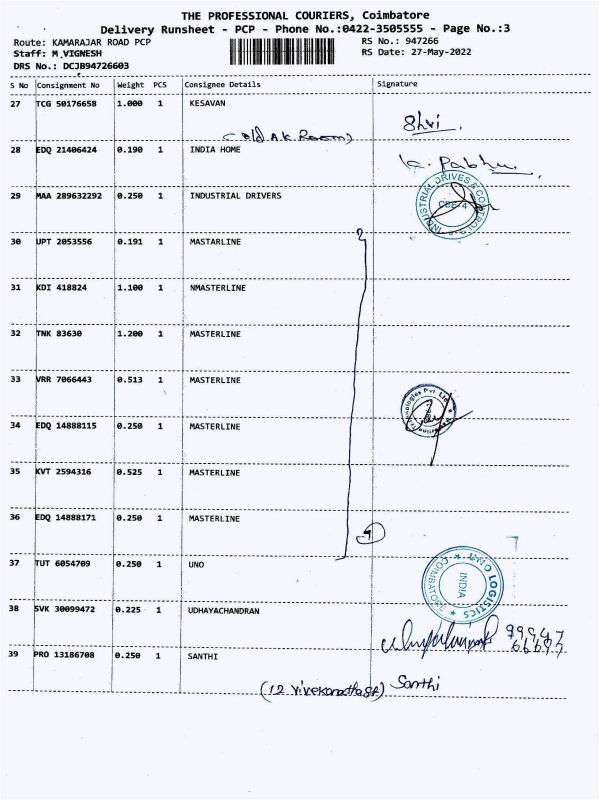 THE PROFESSIONAL COURIERS, Coimbatore
Delivery Runsheet - PCP - Phone No.:0422-3505555 - Page No.:3
Route: KAMARAJAR ROAD PCP
RS No.: 947266
Staff: M VIGNESH
RS Date: 27-May-2022
DRS No.: DCJB94726603
S No Consignment No Weight PCS Consignee Details Signature
27 TCG 50176658 1.000 1 KESAVAN
Shri
(Old A.K Room)
28 EDQ 21406424 0.190 1 INDIA HOME
29 MAA 289632292 0.250 1 INDUSTRIAL DRIVERS
INDUSTRIAL DRIVES & CONTROLS
CBE-4
30 UPT 2053556 0.191 1 MASTARLINE
31 KDI 418824 1.100 1 NMASTERLINE
32 TNK 83630 1.200 1 MASTERLINE
33 VRR 7066443 0.513 1 MASTERLINE
Technologies Pvt. Ltd.
34 EDQ 14888115 0.250 1 MASTERLINE
35 KVT 2594316 0.525 1 MASTERLINE
36 EDQ 14888171 0.250 1 MASTERLINE
37 TUT 6054709 0.250 1 UNO
UNO LOGISTICS
INDIA
COIMBATORE
38 SVK 30099472 0.225 1 UDHAYACHANDRAN
39 PRO 13186708 0.250 1 SANTHI
Santhi